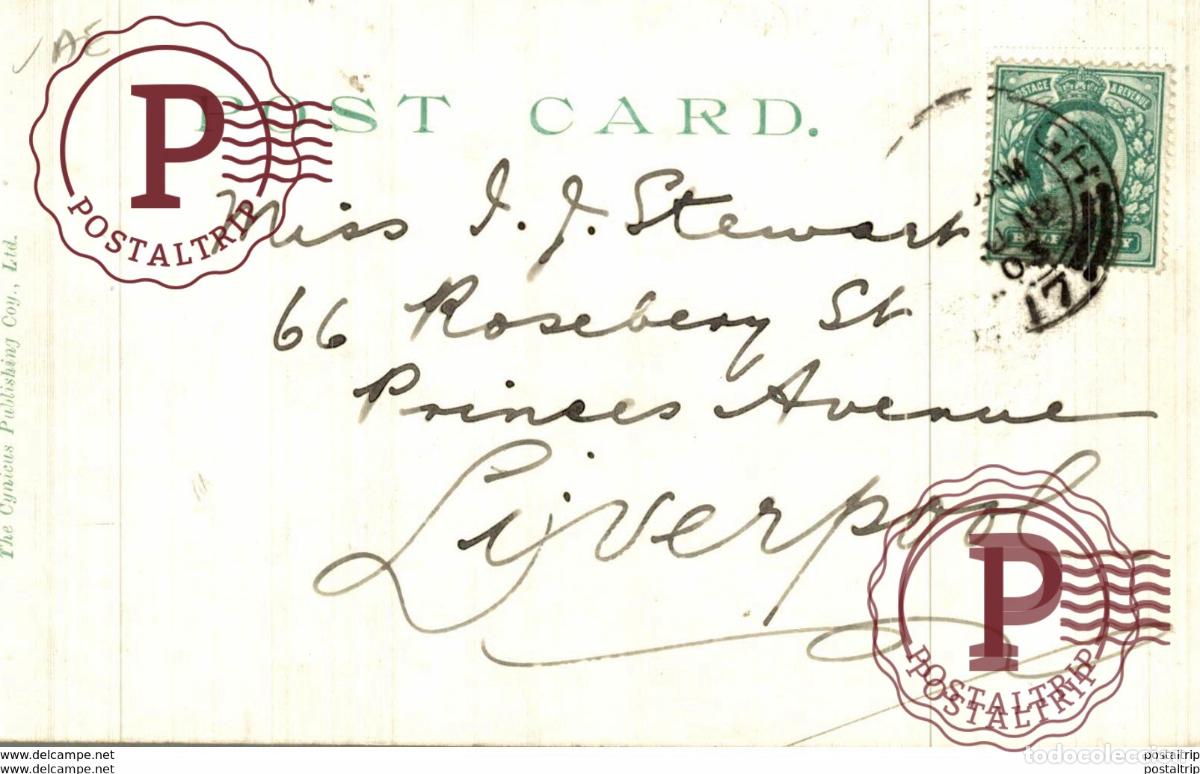 AE
POST CARD.
Miss I. J. Stewart
66 Rosebery St
Princes Avenue
Liverpool
The Cynicus Publishing Coy., Ltd.
POSTAGE & REVENUE
GH
18
17
P
POSTALTRIP
P
POSTALTRIP
POSTALTRIP
todocoleccion
www.delcampe.net
postaltrip
www.delcampe.net
postaltrip